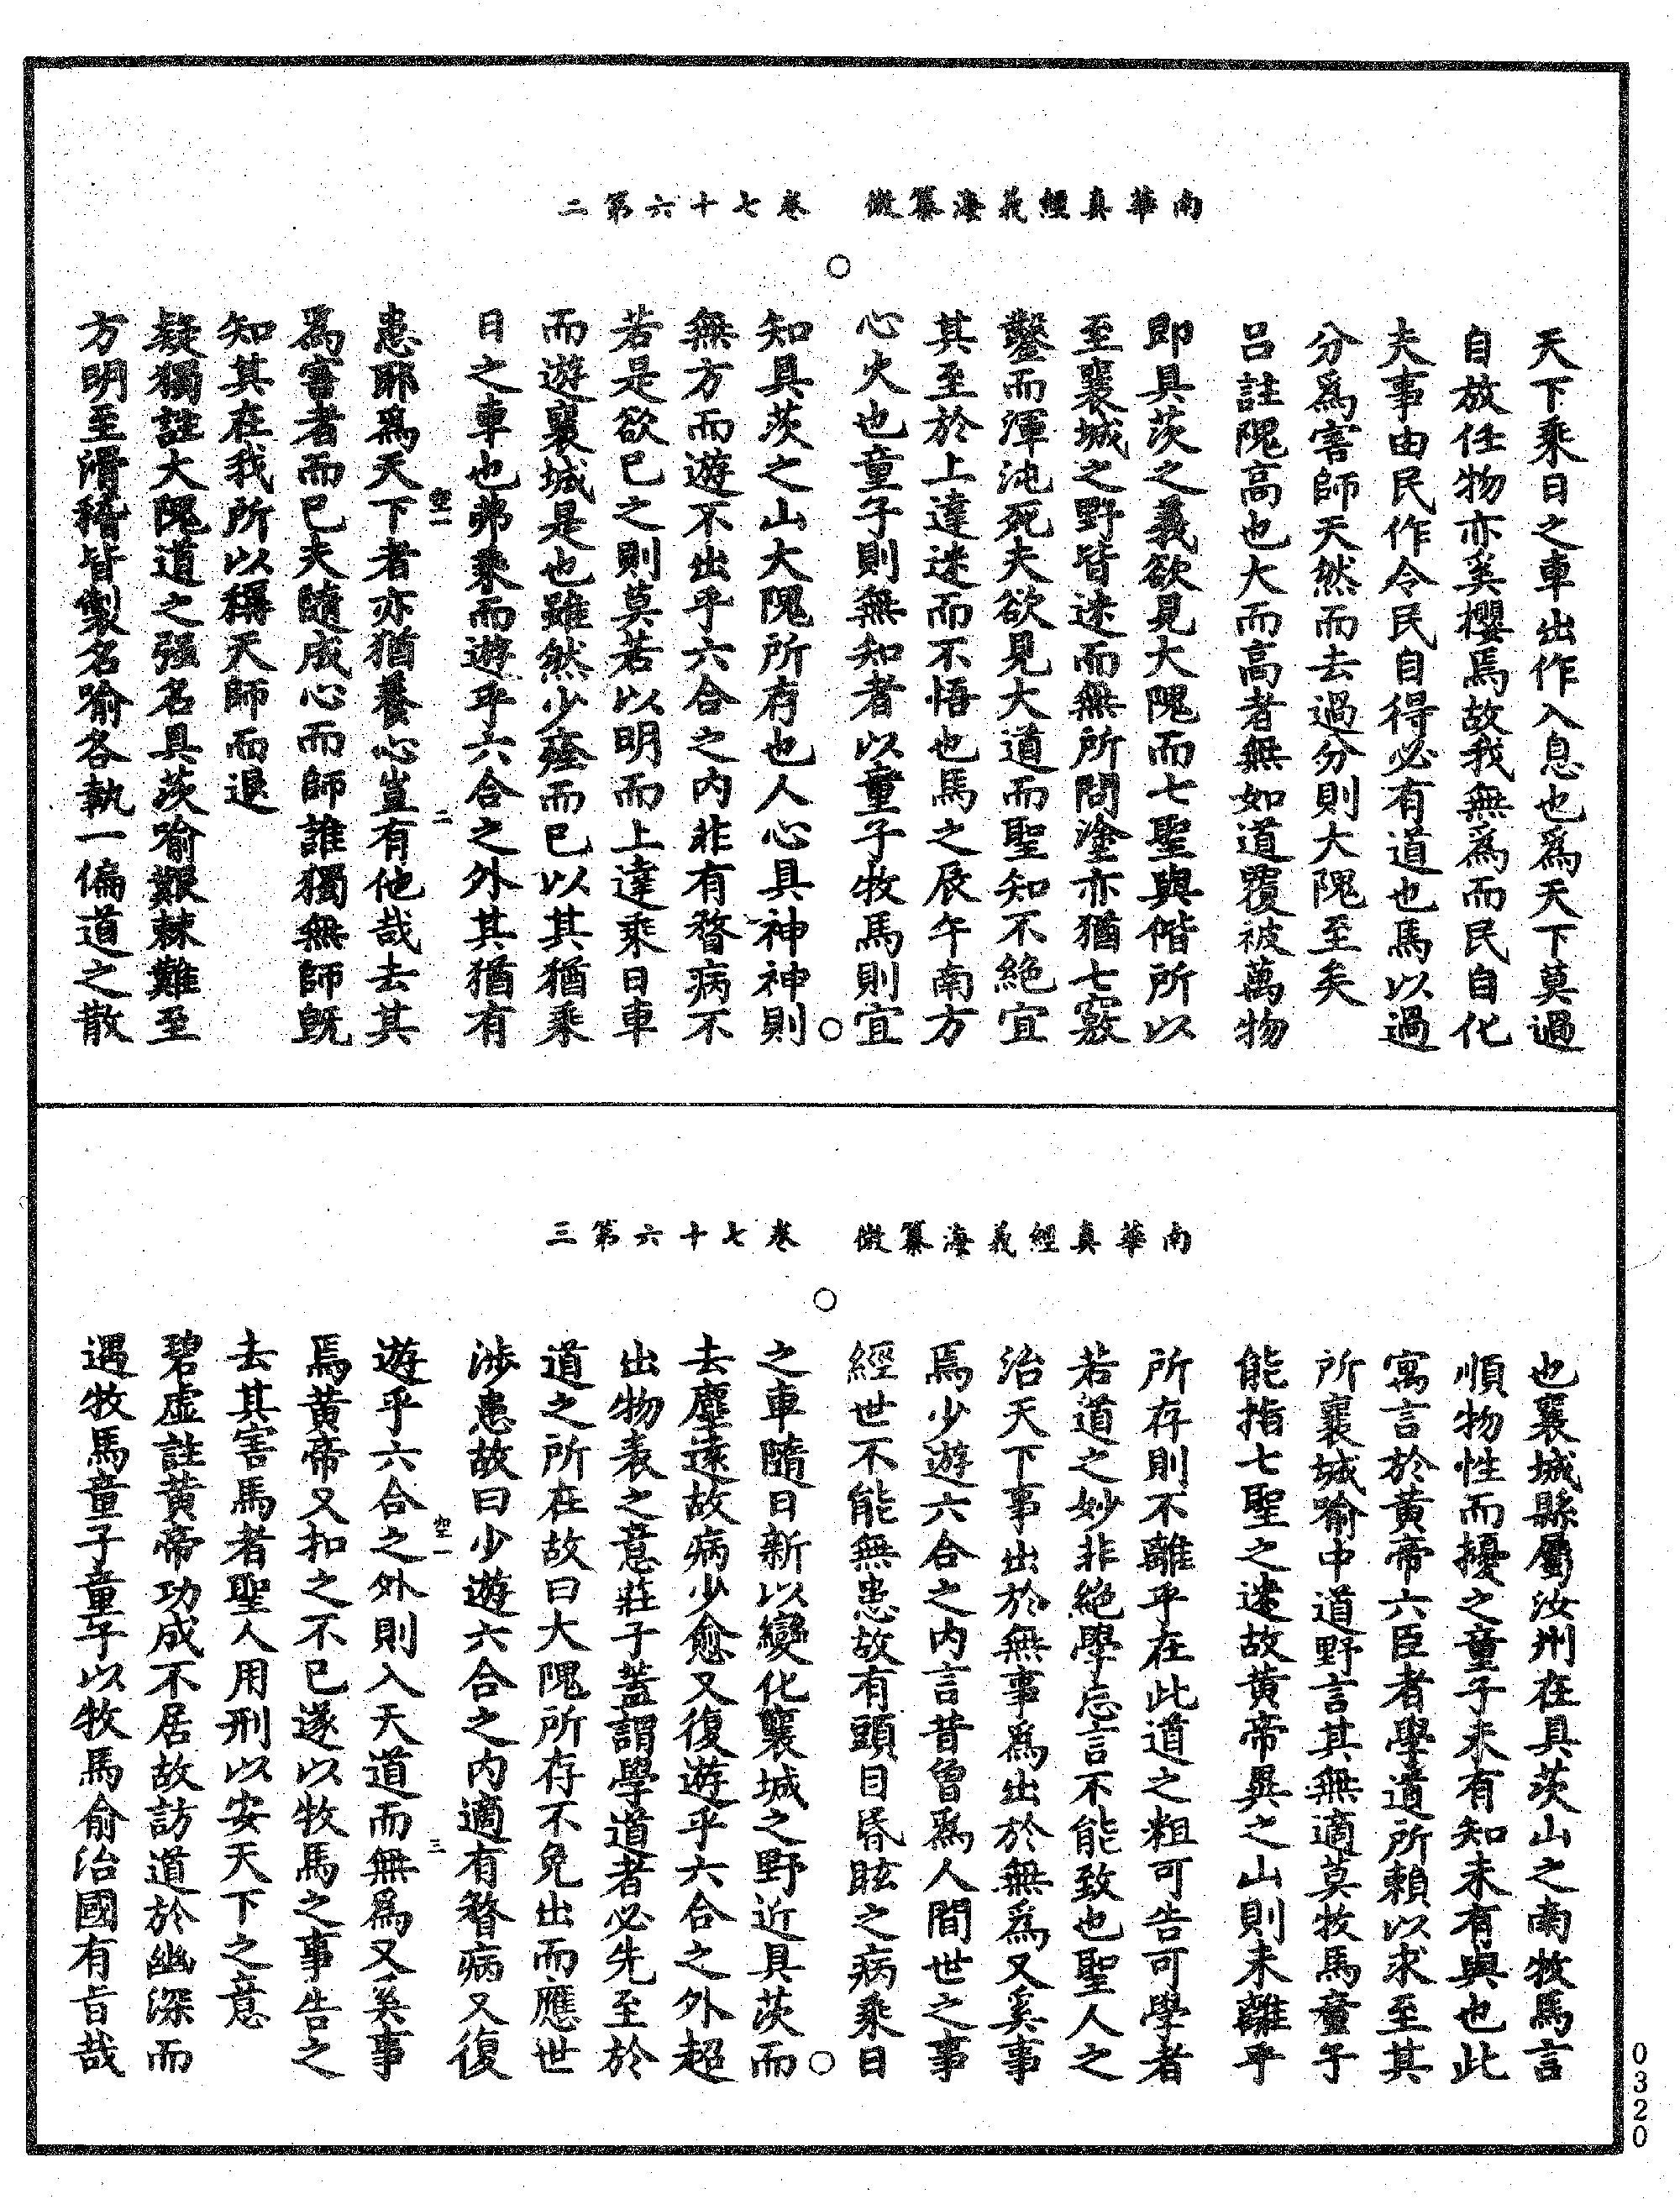 南華真經義海纂微　卷七十六第二
天下乘日之車出作入息也爲天下莫過
自放任物亦奚攖焉故我無爲而民自化
夫事由民作令民自得必有道也馬以過
分爲害師天然而去過分則大隗至矣
呂註隗高也大而高者無如道覆被萬物
即具茨之義欲見大隗而七聖與偕所以
至襄城之野皆迷而無所問塗亦猶七竅
鑿而渾沌死夫欲見大道而聖知不絶宜
其至於上達迷而不悟也馬之辰午南方
心火也童子則無知者以童子牧馬則宜
知具茨之山大隗所存也人心具神神則
無方而遊不出乎六合之内非有瞀病不
若是欲已之則莫若以明而上達乘日車
而遊襄城是也雖然少痊而已以其猶乘
日之車也弗乘而遊乎六合之外其猶有
空一
二
患耶爲天下者亦猶養心豈有他哉去其
爲害者而已夫隨成心而師誰獨無師旣
知其在我所以稱天師而退
疑獨註大隗道之强名具茨喻艱棘難至
方明至滑稽皆製名喻各執一偏道之散
南華真經義海纂微　卷七十六第三
也襄城縣屬汝州在具茨山之南牧馬言
順物性而擾之童子未有知未有與也此
寓言於黃帝六臣者學道所賴以求至其
所襄城喻中道野言其無適莫牧馬童子
能指七聖之迷故黃帝異之山則未離乎
所存則不離乎在此道之粗可告可學者
若道之妙非絶學忘言不能致也聖人之
治天下事出於無事爲出於無爲又奚事
焉少遊六合之内言昔曾爲人間世之事
經世不能無患故有頭目昏眩之病乘日
之車隨日新以變化襄城之野近具茨而
去塵遠故病少愈又復遊乎六合之外超
出物表之意莊子蓋謂學道者必先至於
道之所在故曰大隗所存不免出而應世
涉患故曰少遊六合之内適有瞀病又復
空一
三
遊乎六合之外則入天道而無爲又奚事
焉黃帝又扣之不已遂以牧馬之事告之
去其害馬者聖人用刑以安天下之意
碧虛註黃帝功成不居故訪道於幽深而
遇牧馬童子童子以牧馬俞治國有旨哉
0320